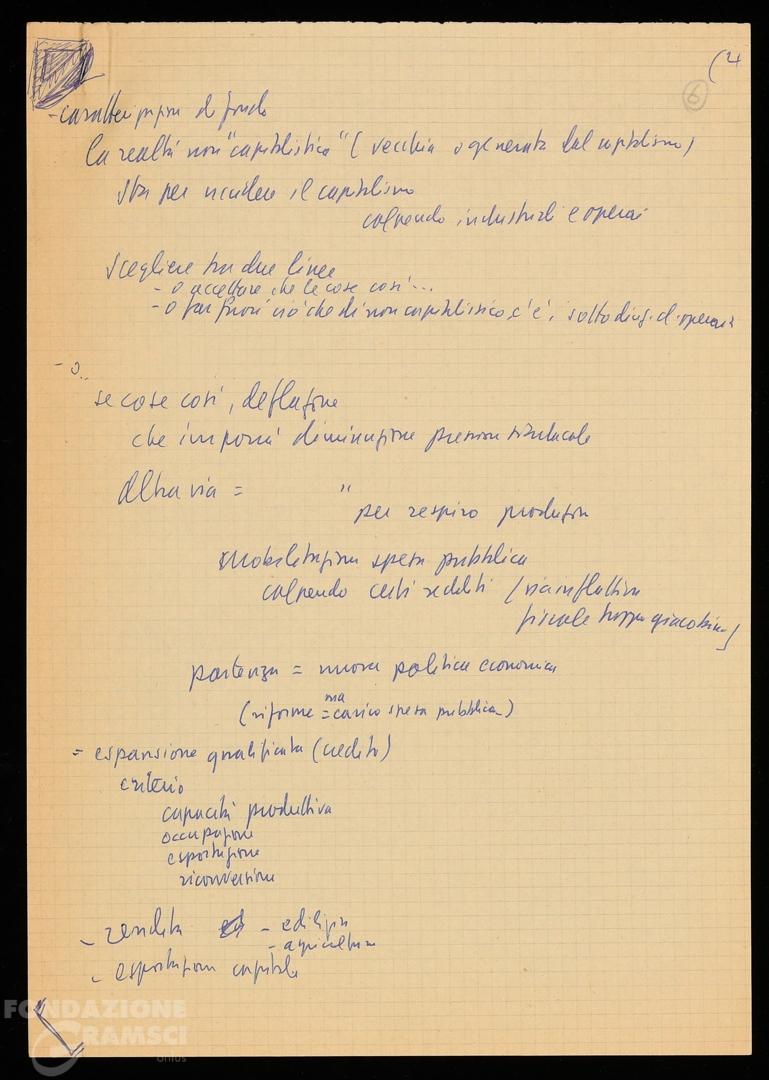 (4
6
- caratteri propri di fondo
la realtà non "capitalistica" ( vecchia o generata dal capitalismo )
sta per uccidere il capitalismo
colpendo industriali e operai
scegliere tra due linee
- o accettare che le cose così ...
- o far fuori ciò che di non capitalistico c'è, sotto direz. d. operai
- o..
se cose così, deflazione
che imporrà diminuzione pressione sindacale
altra via = "
per respiro produzion
mobilitazione spesa pubblica
colpendo certi redditi ( via inflattiva
fiscale troppo giacobina )
partenza = nuova politica economica
ma
(riforme = carico spesa pubblica)
= espansione qualificata (credito)
criterio
capacità produttiva
occupazione
esportazione
riconversione
- rendita - edilizia
- agricoltura
- esportazione capitale
FONDAZIONE
GRAMSCI
onlus